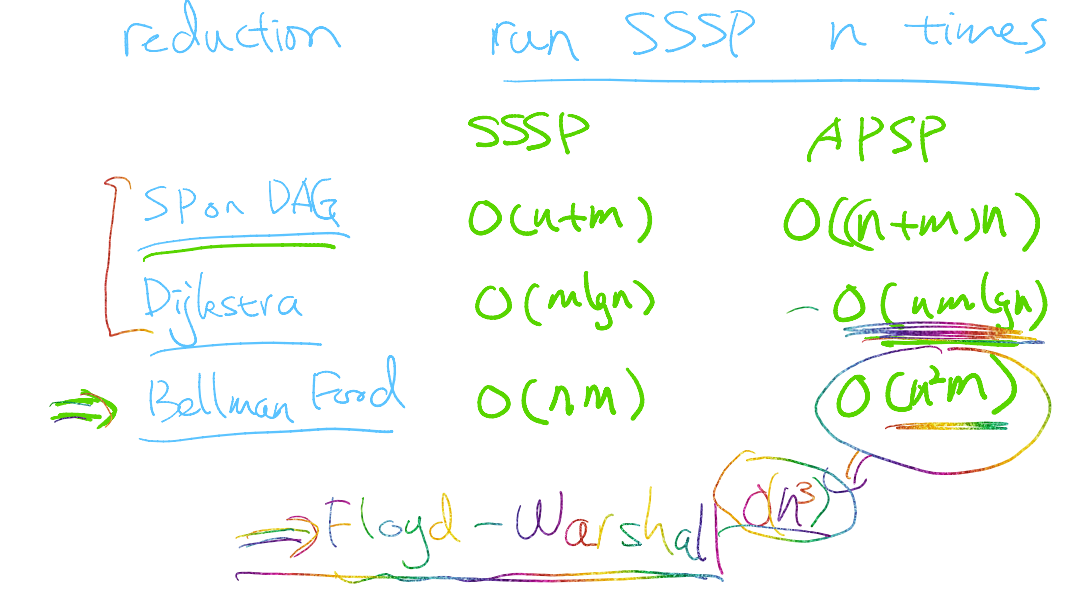 reduction run SSSP n times
SSSP APSP
SP on DAG O(n+m) O((n+m)n)
Dijkstra O(mlgn) O(nmlgn)
⇒ Bellman Ford O(nm) O(n²m)
⇒ Floyd-Warshall O(n³)